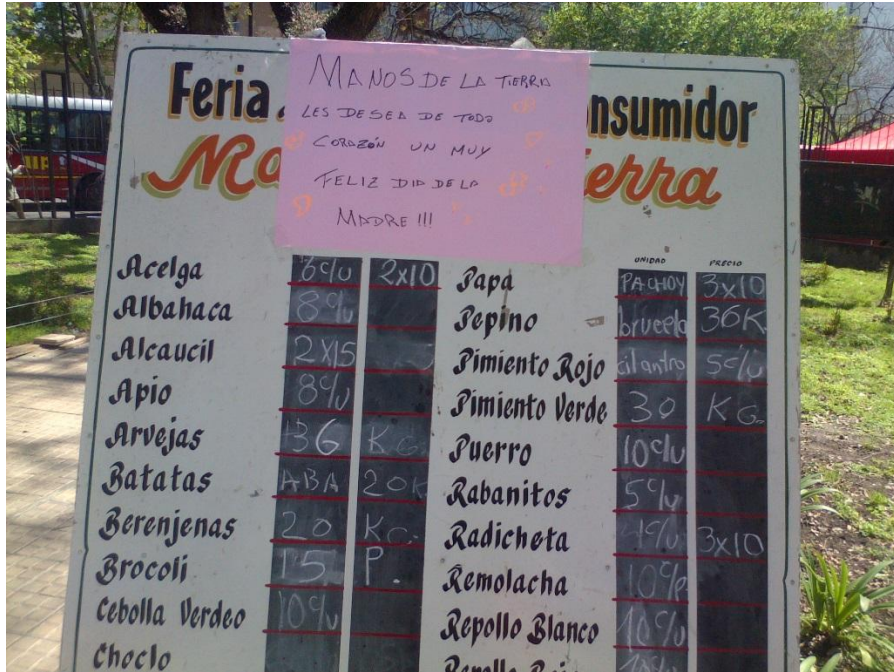 MANOS DE LA TIERRA
LES DESEA DE TODO
CORAZÓN UN MUY
FELIZ DIA DE LA
MADRE !!!
Feria onsumidor
Ma ierra
Acelga 6c/u 2x10
Albahaca 8c/u
Alcaucil 2x15
Apio 8c/u
Arvejas 36 KG.
Batatas ABA 20K
Berenjenas 20 KG.
Brocoli 15 P.
Cebolla Verdeo 10c/u
Choclo
UNIDAD PRECIO
Papa PACHOY 3x10
Pepino brucela 36K
Pimiento Rojo cilantro 5c/u
Pimiento Verde 30 KG.
Puerro 10c/u
Rabanitos 5c/u
Radicheta 4c/u 3x10
Remolacha 10c/u
Repollo Blanco 10c/u